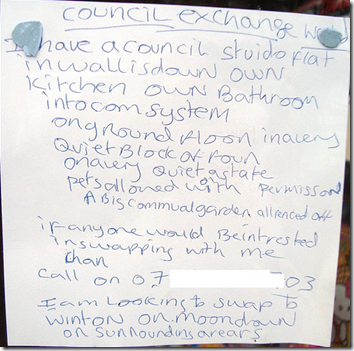 council exchange
I have a council stuido flat
in wallisdown own
kitchen own Bathroom
intocom system
on ground floor in a very
Quiet Block of foun
on a very Quiet astate
pets allowed with permisson
A Big commual garden all fenced off
if anyone would Be intrested
in swapping with me
than
call on 07 03
I am Looking to swap to
winton or moordown
or surrounding arears